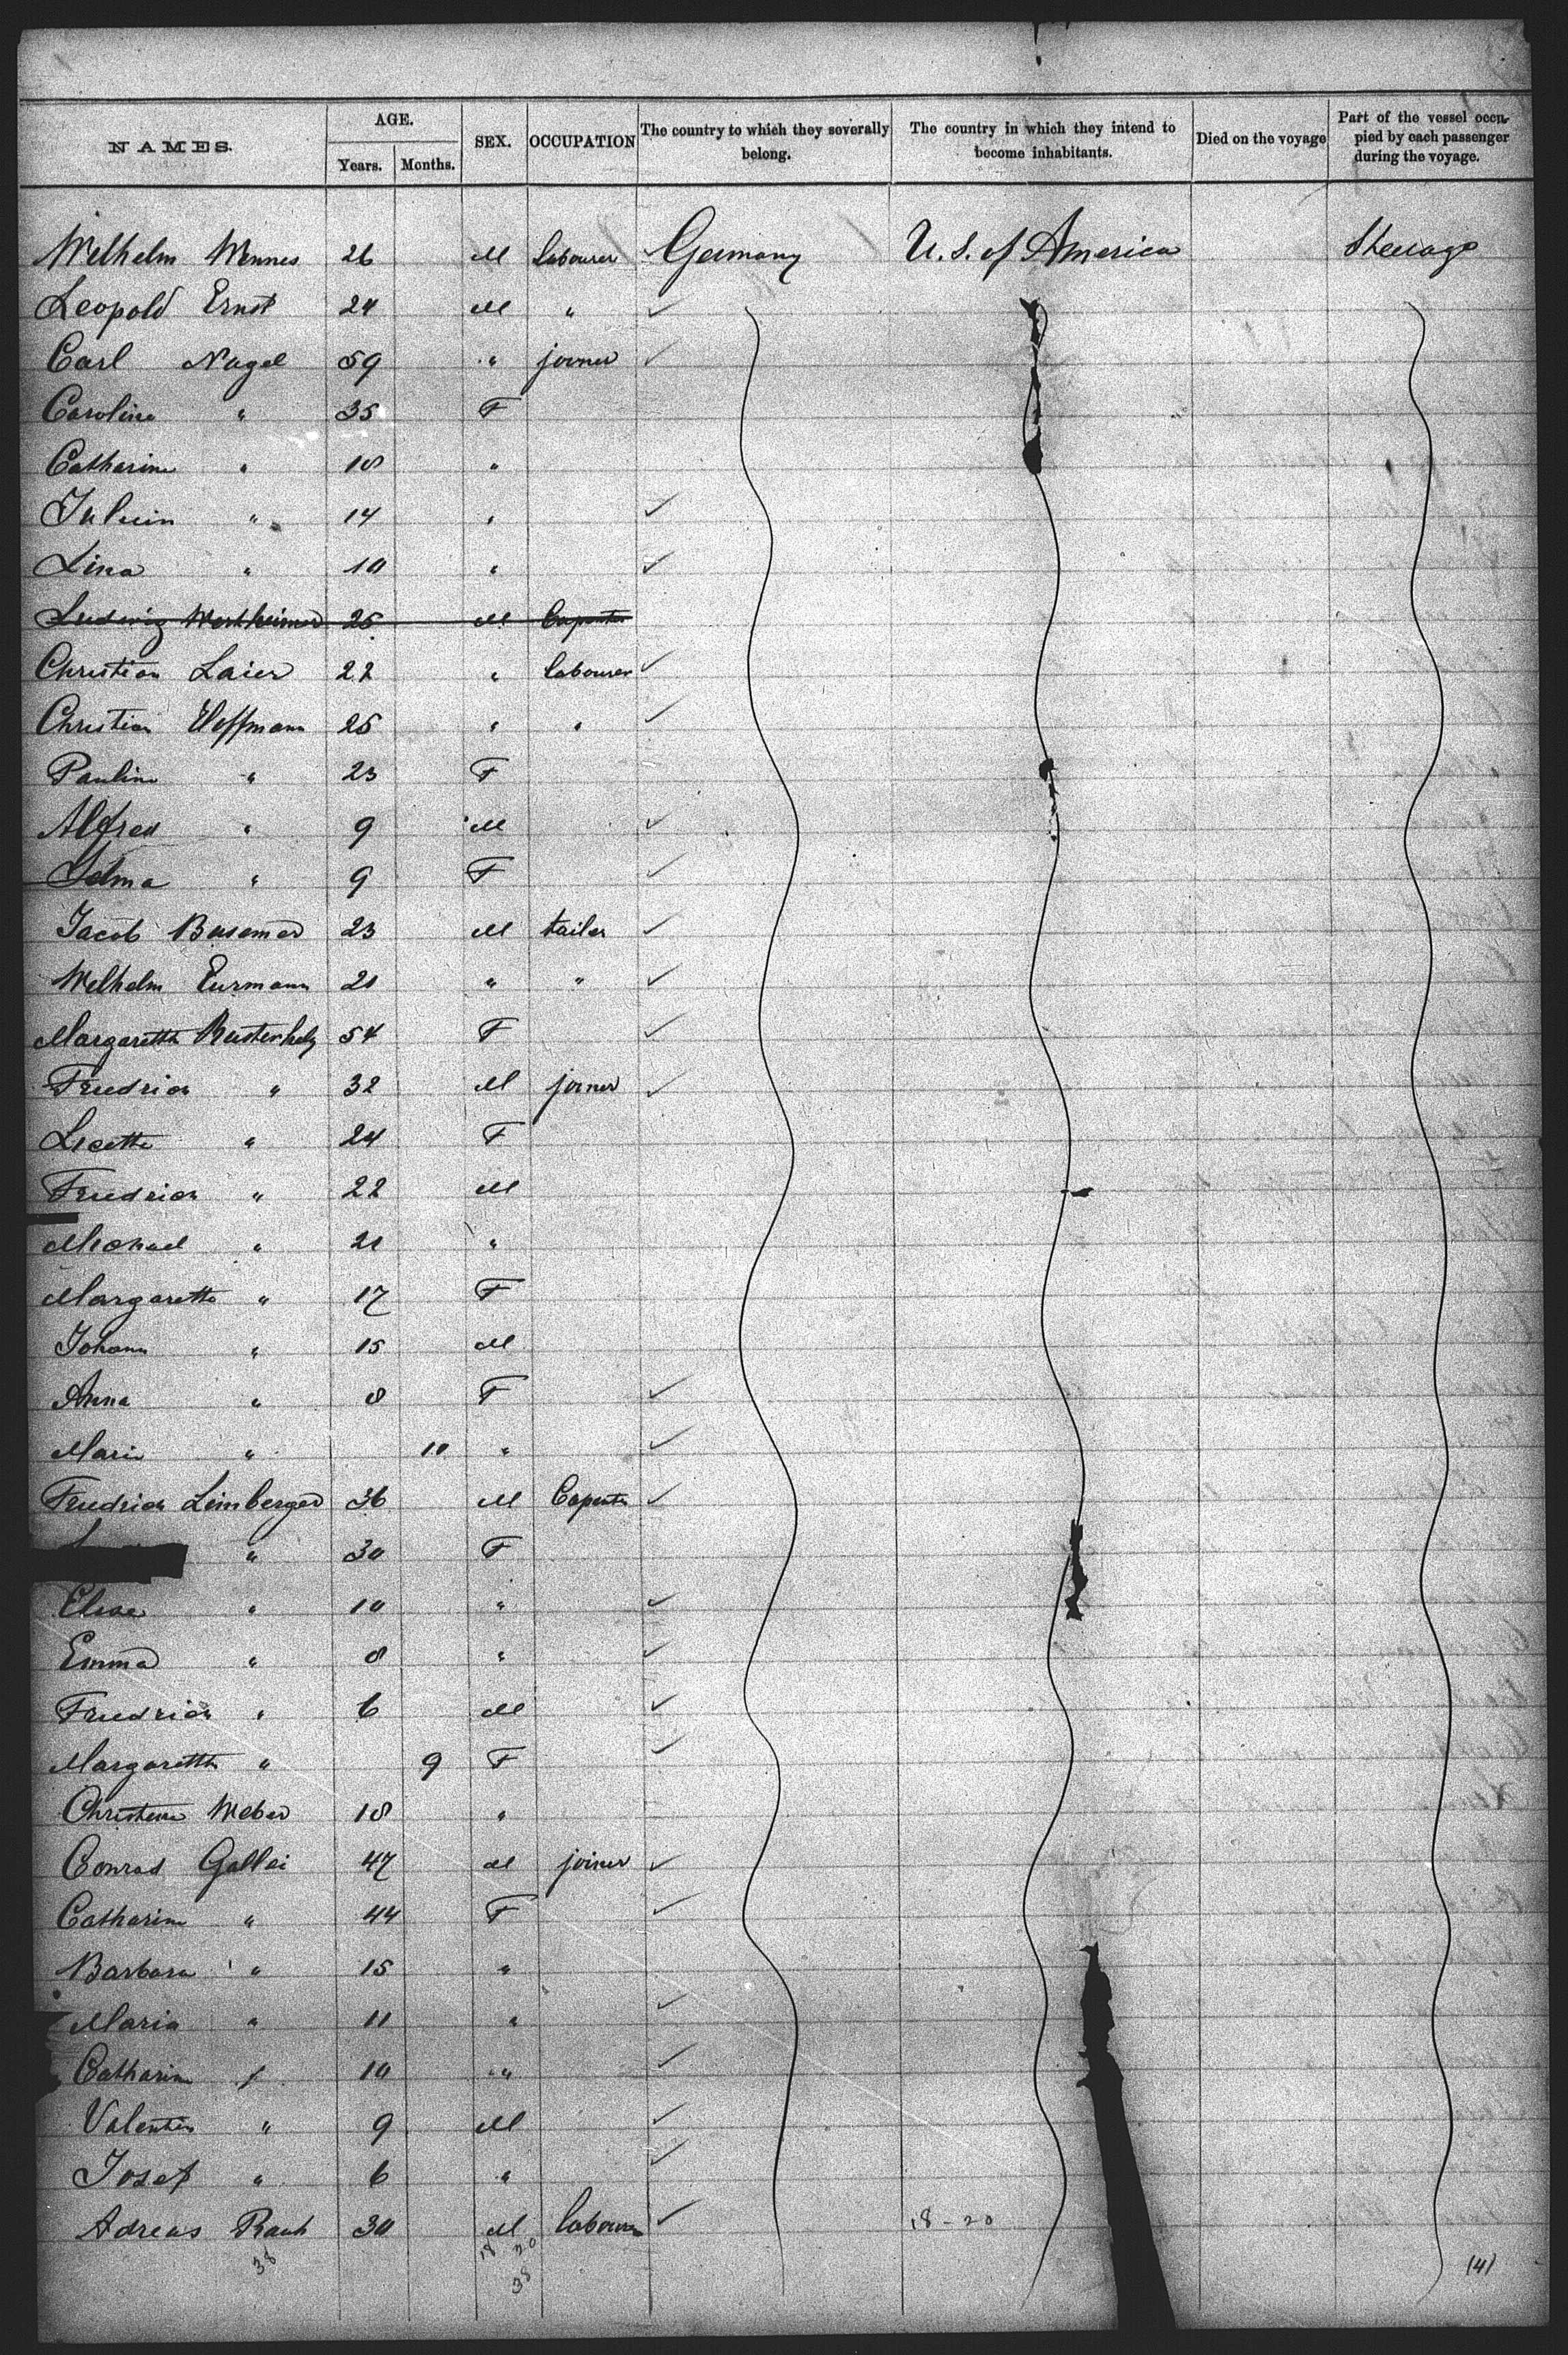 NAMES. AGE. Years. Months. SEX. OCCUPATION The country to which they severally belong. The country in which they intend to become inhabitants. Died on the voyage Part of the vessel occupied by each passenger during the voyage.
Wilhelm Wennes 26 M labourer ✓ Germany U. S. of America Steerage
Leopold Ernst 24 M " ✓
Carl Nagel 59 " joiner ✓
Caroline " 35 F
Catharine " 18 "
" 14 " ✓
Lina " 10 " ✓
Ludwig Wertheimer 25 M Carpenter
Christian Laier 22 " labourer ✓
Christian Hoffmann 25 " " ✓
Pauline " 23 F
Alfred " 9 M ✓
Selma " 9 F ✓
Jacob Busemer 23 M tailor ✓
Wilhelm Eurmann 21 " " ✓
Margaretha 54 F ✓
Friedrich " 32 M joiner ✓
Licette " 24 F
Friedrich " 22 M
Michael " 21 "
Margaretha " 17 F
Johann " 15 M
Anna " 8 F ✓
Marie " 10 " ✓
Friedrich Leimberger 36 M Carpentr ✓
" 30 F
Elise " 10 " ✓
Emma " 8 " ✓
Friedrich " 6 M ✓
Margaretha " 9 F ✓
Christine Weber 18 "
Conrad Gallei 47 M joiner ✓
Catharine " 44 F ✓
Barbara " 15 "
Maria " 11 " ✓
Catharine " 10 " ✓
Valentin " 9 M ✓
Josef " 6 " ✓
Adreas Rauh 30 M labourer ✓ 18-20
38 18 20 (4)
38